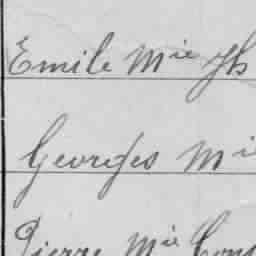 Emile Mie Jh
Georges Mi
Pierre Mie Cons